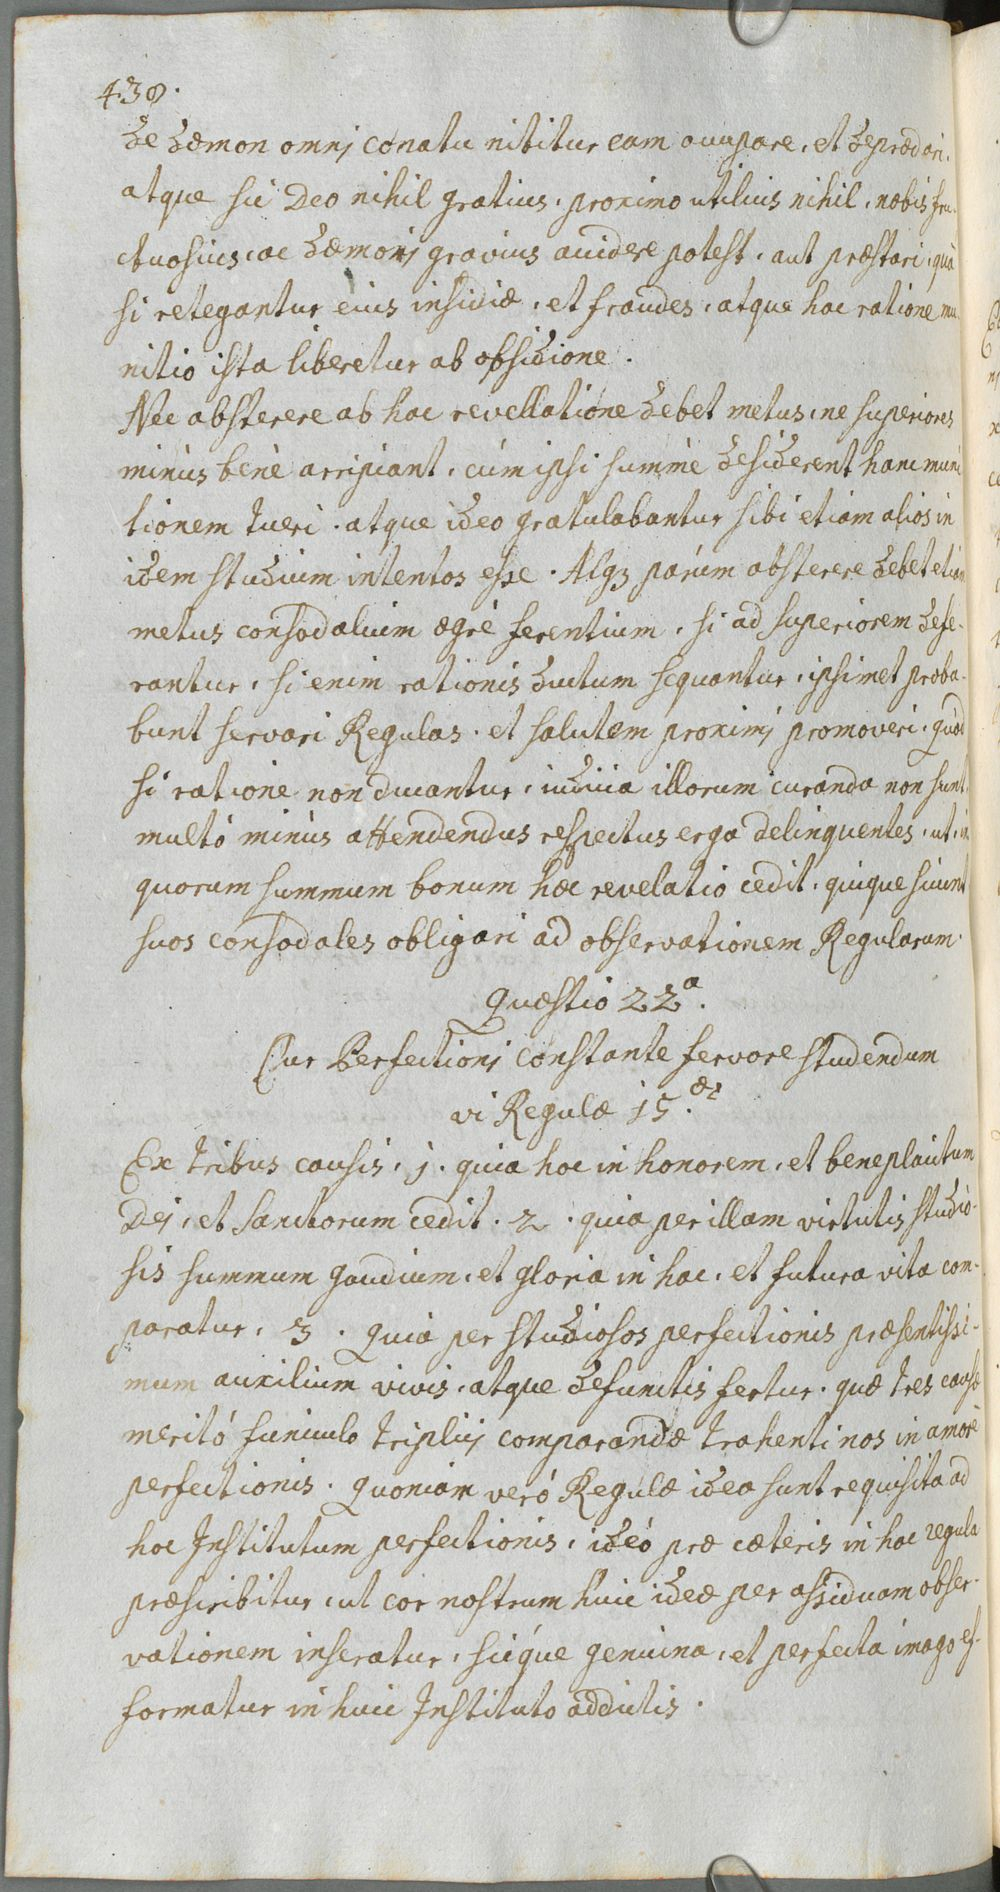 438.
de dæmon omnj conatu nititur eam occupare, et deprædari,
atque sic Deo nihil gratius, proximo utilius nihil, nobis fru-
ctuosius, ac dæmonj gravius accidere potest, aut præstari, quà
si retegantur eius insidiæ, et fraudes, atque hac ratione mu-
nitio ista liberetur ab obsidione.
Nec absterere ab hac revellatione debet metus, ne superiores
minùs benè arripiant, cùm ipsi summè desiderent hanc muni
tionem tueri, atque ideo gratulabantur sibi etiam alios in
idem studium intentos esse. Atqz parùm absterere debet etiam
metus consodalium ægrè ferentium, si ad superiorem defe-
rantur, si enim rationis ductum sequantur, ipsimet proba-
bunt servari Regulas, et salutem proximj promoveri, quod
si ratione non ducantur, iudicia illorum curanda non sunt,
multó minùs attendendus respectus erga delinquentes, ut, in
quorum summum bonum hæc revelatio cedit, quique sciunt
suos consodales obligari ad observationem Regularum.
Quæstio 22ª.
Cur Perfectionj constante fervore studendum
vi Regulæ 15.æ?
Ex tribus causis, j. quia hoc in honorem, et beneplacitum
Dej, et Sanctorum cedit. 2. quia per illam virtutis studio-
sis summum gaudium, et gloria in hac, et futura vita com-
paratur, 3. Quia per studiosos perfectionis præsentissi-
mum auxilium vivis, atque defunctis fertur. quæ tres causæ
meritó funiculo triplicj comparandæ trahenti nos in amorè
perfectionis. Quoniam veró Regulæ idea sunt requisita ad
hoc Institutum perfectionis, ideó præ cæteris in hac regula
præscribitur, ut cor nostrum huic ideæ per assiduam obser-
vationem inseratur, sicque genuina, et perfecta imago ef-
formatur in huic Instituto addictis.